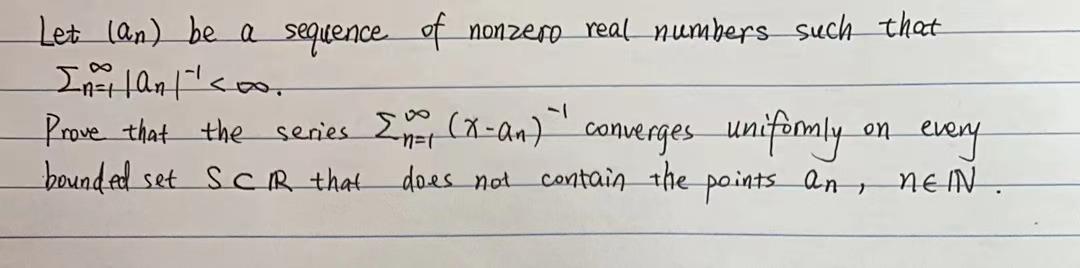 Let (an) be a sequence of nonzero real numbers such that
Σn=1^∞ |an|^-1 < ∞.
Prove that the series Σn=1^∞ (x-an)^-1 converges uniformly on every
bounded set S⊂ℝ that does not contain the points an, n∈ℕ.